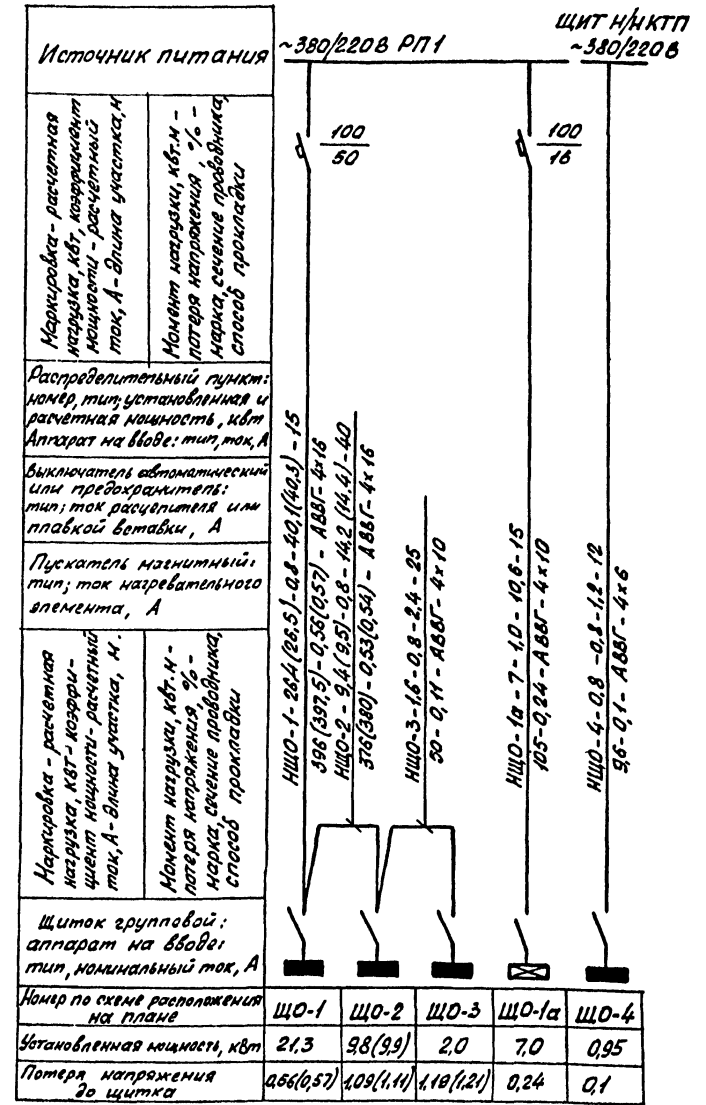 ЩИТ Н/Н КТП
Источник питания
~380/220В РП1
~380/220В
Маркировка-расчетная
нагрузка, квт, коэффициент
мощности-расчетный
ток, А-длина участка, м
Момент нагрузки, квт.м-
потеря напряжения, %-
марка, сечение проводника,
способ прокладки
100
50
100
16
Распределительный пункт:
номер, тип; установленная и
расчетная мощность, квт
Аппарат на вводе: тип, ток, А
Выключатель автоматический
или предохранитель:
тип; ток расцепителя или
плавкой вставки, А
Пускатель магнитный:
тип; ток нагревательного
элемента, А
Маркировка-расчетная
нагрузка, квт-коэффи-
циент мощности-расчетный
ток, А-длина участка, м.
Момент нагрузки, квт.м-
потеря напряжения, %-
марка, сечение проводника,
способ прокладки
НЩО-1-26,4(26,5)-0,8-40,1(40,3)-15
396(397,5)-0,56(0,57)-АВВГ-4х16
НЩО-2-9,4(9,5)-0,8-14,2(14,4)-40
376(380)-0,53(0,54)-АВВГ-4х16
НЩО-3-1,6-0,8-2,4-25
50-0,11-АВВГ-4х10
НЩО-1а-7-1,0-10,6-15
105-0,24-АВВГ-4х10
НЩО-4-0,8-0,8-1,2-12
9,6-0,1-АВВГ-4х6
Щиток групповой:
аппарат на вводе:
тип, номинальный ток, А
Номер по схеме расположения
на плане
ЩО-1 ЩО-2 ЩО-3 ЩО-1а ЩО-4
Установленная мощность, квт 21,3 9,8(9,9) 2,0 7,0 0,95
Потеря напряжения
до щитка
0,56(0,57) 1,09(1,11) 1,18(1,21) 0,24 0,1